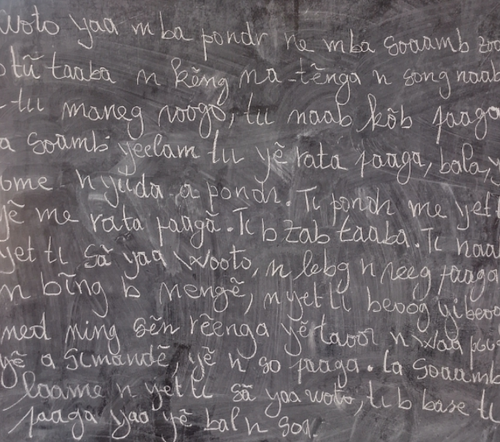 woto yaa m ba pondr ne mba soaamb zoa
tũ taaba n kẽng na-tẽnga n song naab
tu maneg roogo, tu naab kõb paaga
a soamb yeelam tu yẽ rata paaga, bala,
ome n yuda a pondr. Ti pondr me yet t
yẽ me rata paaga. Ti b zab taaba. Ti naa
yet ti sã yaa wooto, n lebg n reeg paaga
n bĩng b nengẽ, n yet ti beoog yibeoo
ned ning sẽn rẽenga yẽ taoor n waa
yẽ a simandẽ yẽ n so paaga. La soaamb
loame n yet ti sã yaa woto, ti b base t
paaga yaa yẽ bal n so.